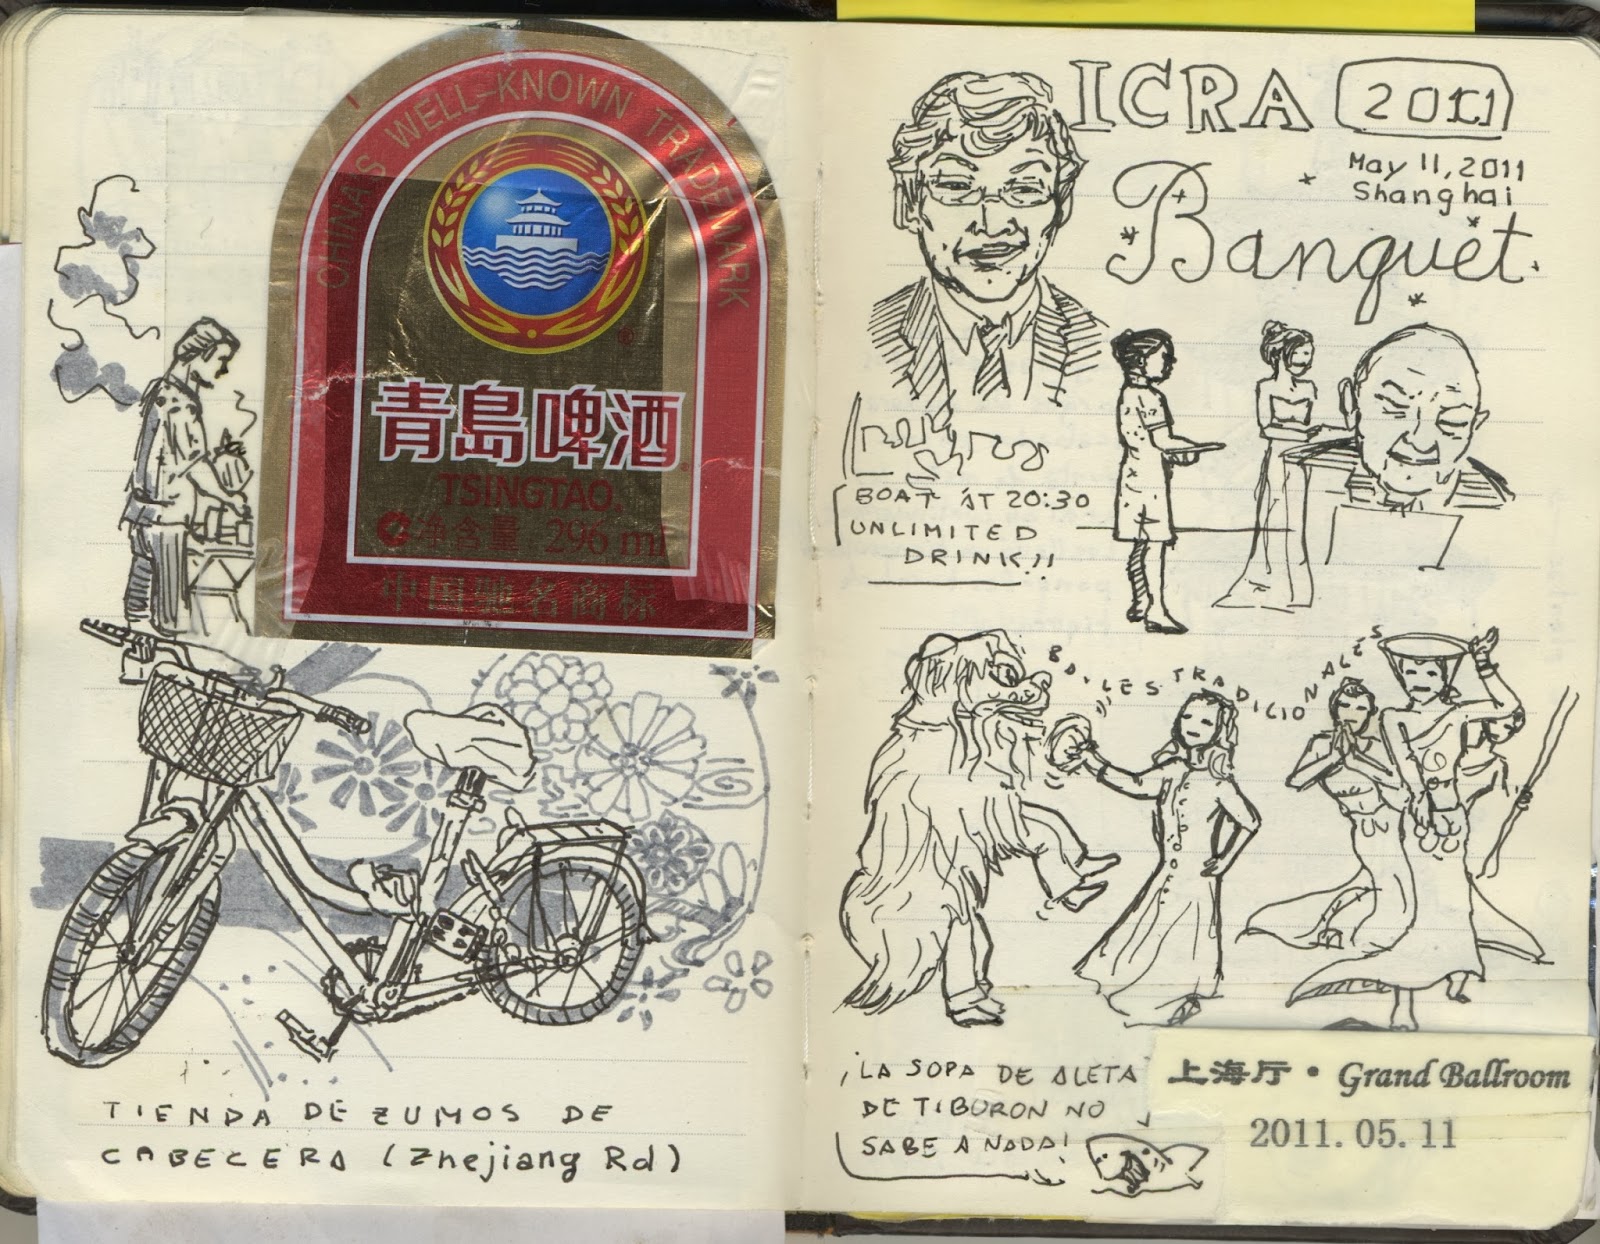 CHINA'S WELL-KNOWN TRADEMARK
青島啤酒
TSINGTAO.
净含量 296 ml
中国驰名商标
TIENDA DE ZUMOS DE
CABECERA (Zhejiang Rd)
ICRA 2011
May 11, 2011
Shanghai
Banquet
BOAT AT 20:30
UNLIMITED
DRINK!!
BAILES TRADICIONALES
¡LA SOPA DE ALETA
DE TIBURON NO
SABE A NADA!
上海厅·Grand Ballroom
2011.05.11